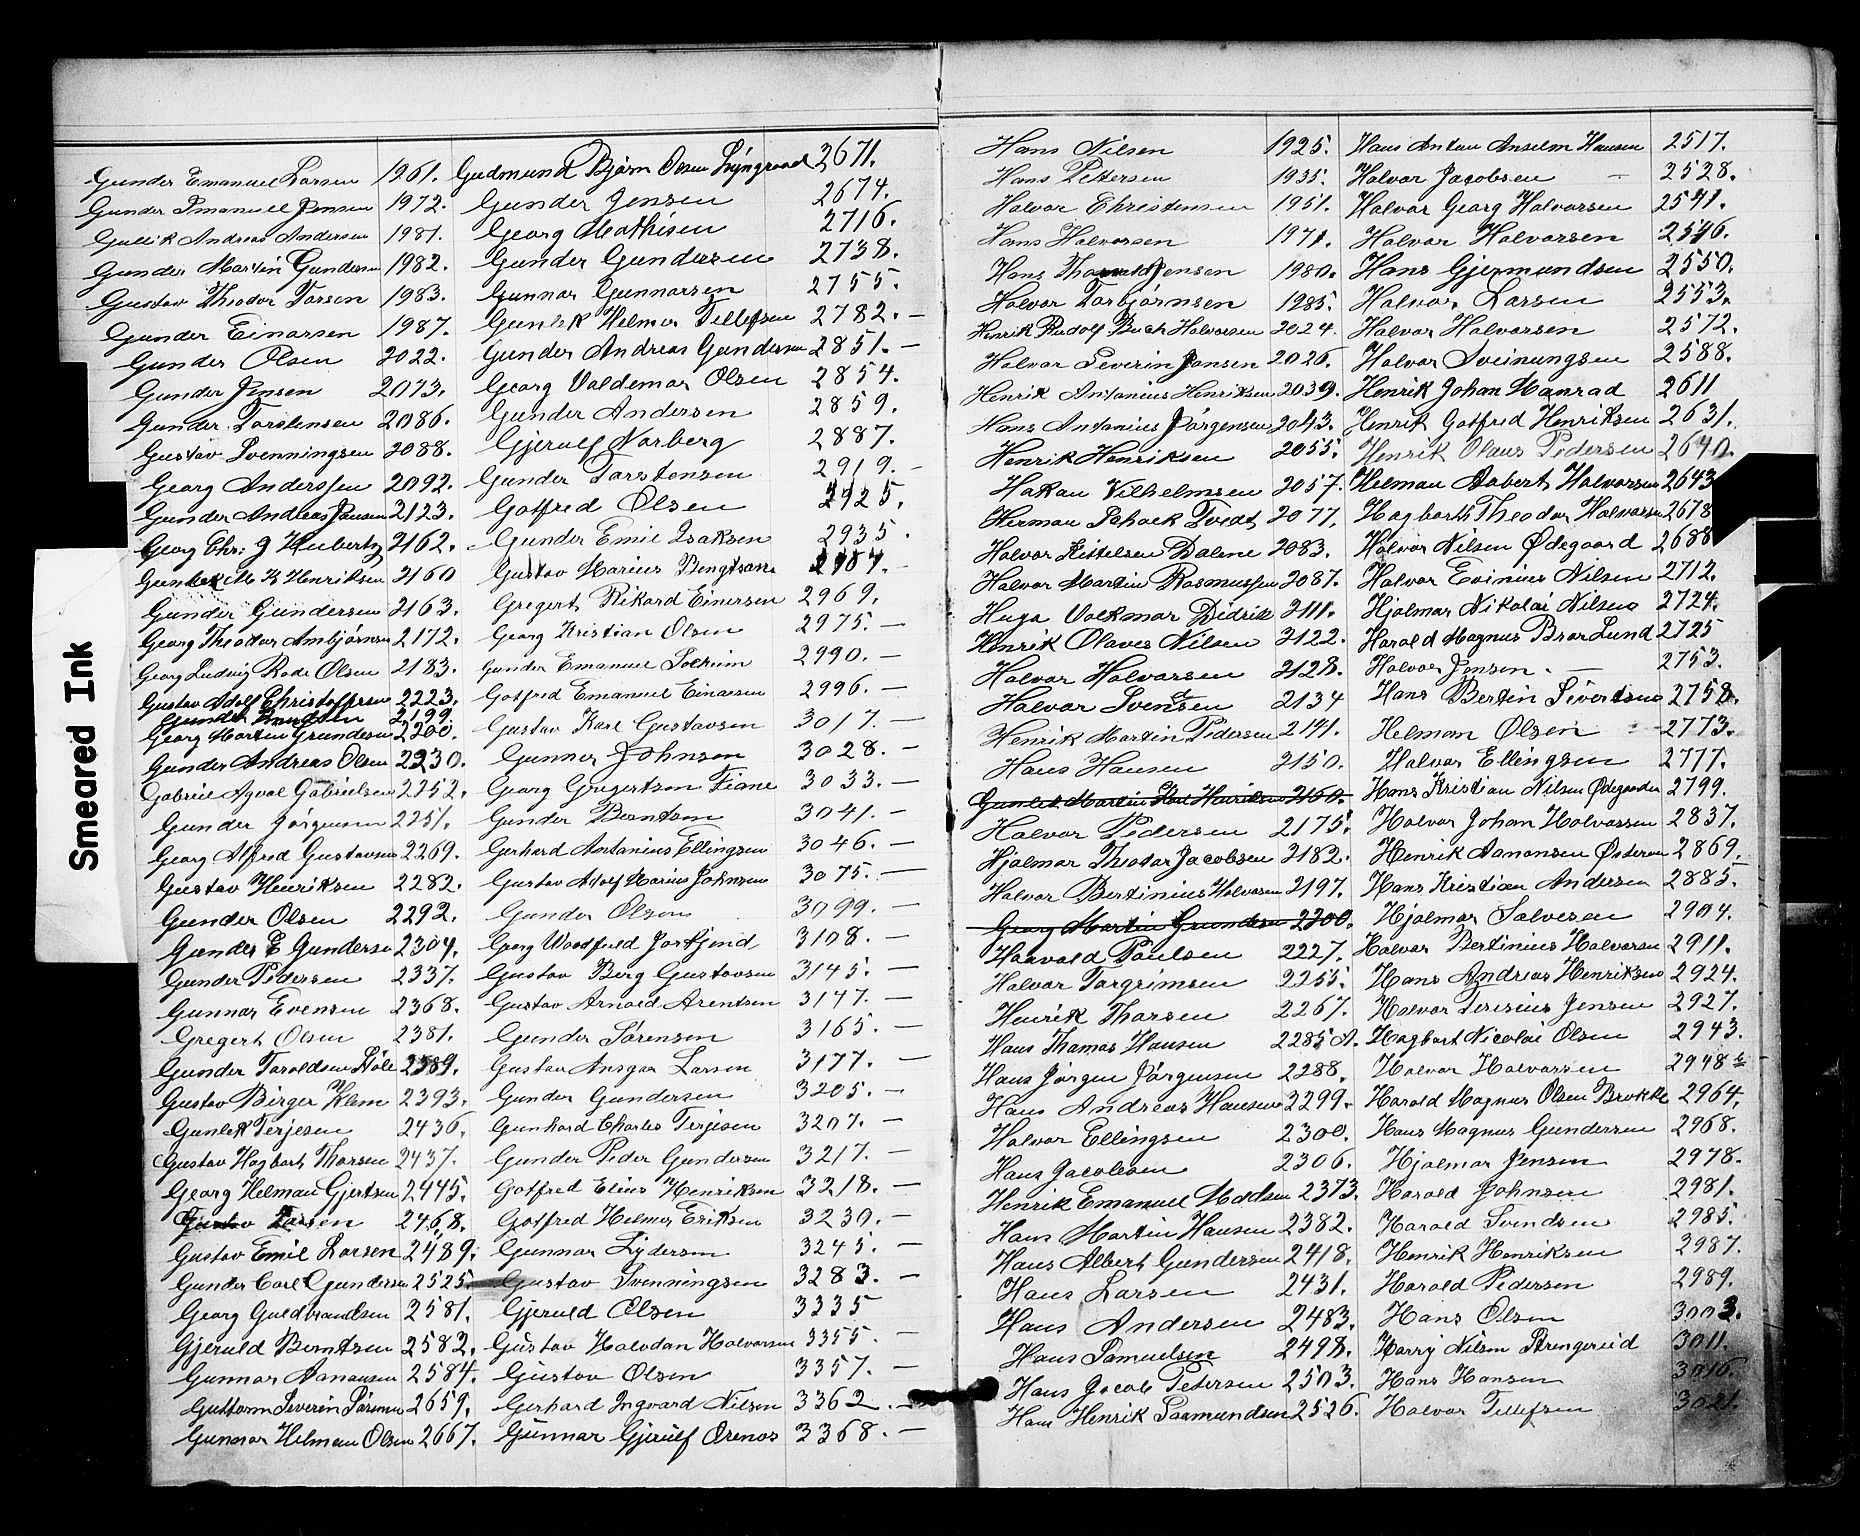 Smeared Ink
Gunder Emanuel Larsen 1961.
Gunder Emanuel Jensen 1972.
Gullik Andreas Andersen 1981.
Gunder Martin Gundersen 1982.
Gustav Theodor Torsen 1983.
Gunder Einarsen 1987.
Gunder Olsen 2022.
Gunder Jensen 2073.
Gunder Torstensen 2086.
Gustav Svenningsen 2088.
Georg Anderssen 2092.
Gunder Andreas Jensen 2123.
Georg Chr: J Hubertz 2162.
Gunlek M K Henriksen 2160
Gunder Gundersen 2163.
Georg Theodor Ambjørnsen 2172.
Georg Ludvig Rode Olsen 2183.
Gustav Adolf Christoffersen 2223.
Gunder Knudsen 2199.
Georg Martin Grundesen 2200.
Gunder Andreas Olsen 2230.
Gabriel Agval Gabrielsen 2252.
Gunder Jørgensen 2251.
Georg Alfred Gustavsen 2269.
Gustav Henriksen 2282.
Gunder Olsen 2292.
Gunder E Gundersen 2304.
Gunder Pedersen 2337.
Gunnar Evensen 2368.
Gregert Olsen 2381.
Gunder Taraldsen 2389.
Gustav Birger Klem 2393.
Gunlek Terjesen 2436.
Gustav Hagbart Thorsen 2437.
Georg Helman Gjertsen 2445.
Gustav Larsen 2468.
Gustav Emil Larsen 2489.
Gunder Carl Gundersen 2525
Georg Guldbrandsen 2581.
Gjeruld Berntsen 2582.
Gunnar Aanonsen 2584.
Guttorm Severin Sørensen 2659.
Gunnar Hilman Olsen 2667.
Gudmund Bjørn Olsen Lyngraad 2671.
Gunder Jensen 2674.
Georg Mathisen 2716.
Gunder Gundersen 2738.
Gunnar Gunnarsen 2755.
Gunlek Helmer Tellefsen 2782. —
Gunder Andreas Gundersen 2851. —
Georg Valdemar Olsen 2854.
Gunder Andersen 2859.
Gjerulf Norberg 2887.
Gunder Torstensen 2919. —
Gotfred Olsen 2925.
Gunder Emil Isaksen 2935.
Gustav Marius Bengtsen —
Gregert Rikard Einersen 2969.
Georg Kristian Olsen 2975. —
Gunder Emanuel 2990. —
Gotfred Emanuel Einarsen 2996. —
Gustav Karl Gustavsen 3017. —
Gunnar Johnsen 3028. —
Georg Gregertsen Fiane 3033. —
Gunder Berntsen 3041. —
Gerhard Antonius Ellingsen 3046. —
Gustav Adolf Marius Johnsen 3075. —
Gunder Olsen 3099. —
Georg Woodfield Jortjend 3108. —
Gustav Berg Gustavsen 3145. —
Gustav Arnold Arentsen 3147. —
Gunder Sørensen 3165. —
Gustav Ansgar Larsen 3177. —
Gunder Gundersen 3205. —
Gunhard Charles Terjesen 3207. —
Gunder Peder Gundersen 3217. —
Gotfred Elias Henriksen 3218. —
Gotfred Helmer Eriksen 3239. —
Gunnar Lydersen 3245. —
Gustav Svenningsen 3283. —
Gjeruld Olsen 3335 —
Gustav Halvdan Halvorsen 3355. —
Gustav Olsen 3357. —
Gerhard Ingvard Nilsen 3362. —
Gunnar Gjerulf Orenæs 3368. —
Hans Nilsen 1925.
Hans Pettersen 1935.
Halvor Christensen 1951.
Hans Halvorsen 1971.
Hans Jensen 1980.
Halvor Torbjørnsen 1985.
Henrik Rudolf Buch Halvorsen 2024.
Halvor Severin Jensen 2026.
Henrik Antonius Henriksen 2039.
Hans Antonius Jørgensen 2043.
Henrik Henriksen 2055.
Hakan Vilhelmsen 2057.
Herman Schack Tvedt 2077.
Halvor Kittelsen Dalene 2083.
Halvor Martin Rasmussen 2087.
Hugo Volkmar Didrik 2111.
Henrik Olaves Nilsen 2122.
Halvor Halvorsen 2128.
Halvor Svensen 2134
Henrik Martin Pedersen 2141.
Hans Hansen 2150.
Gunlek Martin Karl Henriksen 2160.
Halvor Pedersen 2175.
Hjalmar Theodor Jacobsen 2182.
Halvor Bertinius Halvorsen 2197.
Georg Martin Grundesen 2200.
Harvald Paulsen 2227.
Halvor Torgrimsen 2255.
Henrik Thorsen 2267.
Hans Thomas Hansen 2285 A.
Hans Jørgen Jørgensen 2288.
Hans Andreas Hansen 2299.
Halvor Ellingsen 2300.
Hans Jacobsen 2306.
Henrik Emanuel Madsen 2373.
Hans Martin Hansen 2382.
Hans Albert Gundersen 2418.
Hans Larsen 2431.
Hans Andersen 2483.
Hans Samuelsen 2498.
Hans Jacob Petersen 2503.
Hans Henrik Saamundsen 2526.
Hans Anton Anselm Hansen 2517.
Halvor Jacobsen — 2528.
Halvor Georg Halvorsen 2541.
Halvor Halvorsen 2546.
Hans Gjermundsen 2550.
Halvor Larsen 2553.
Halvor Halvorsen 2572.
Halvor Sveinungsen 2588.
Henrik Johan Manrad 2611
Henrik Gotfred Henriksen 2631.
Henrik Olaus Pedersen 2640.
Helman Robert Halvorsen 2643
Hagbarth Theodor Halvorsen 2678
Halvor Nilsen Ødegaard 2688
Halvor Evinius Nilsen 2712.
Hjalmar Nikolai Nilsen 2724.
Harald Magnus Bror Lund 2725
Halvor Jensen. — 2753.
Hans Bertin Sivertsen 2758.
Helman Olsen 2773.
Halvor Ellingsen 2777.
Hans Kristian Nilsen Ødegaarden 2799.
Halvor Johan Halvorsen 2837.
Henrik Aanonsen Østerøen 2869.
Hans Kristian Andersen 2885.
Hjalmar Salvesen 2904.
Halvor Bertinius Halvorsen 2911.
Hans Andreas Henriksen 2924.
Halvor Teresius Jensen 2927.
Hagbart Nicolai Olsen 2943.
Halvor Halvorsen 2948 b
Harald Magnus Olsen Brokke 2964.
Hans Magnus Gundersen 2968.
Hjalmar Jensen 2978.
Harald Johnsen 2981.
Harald Svendsen 2985.
Henrik Henriksen 2987.
Harald Pedersen 2989.
Hans Olsen 3003.
Harry Nilsen Strengereid 3011.
Hans Hansen 3016.
Halvor Tellefsen 3021.